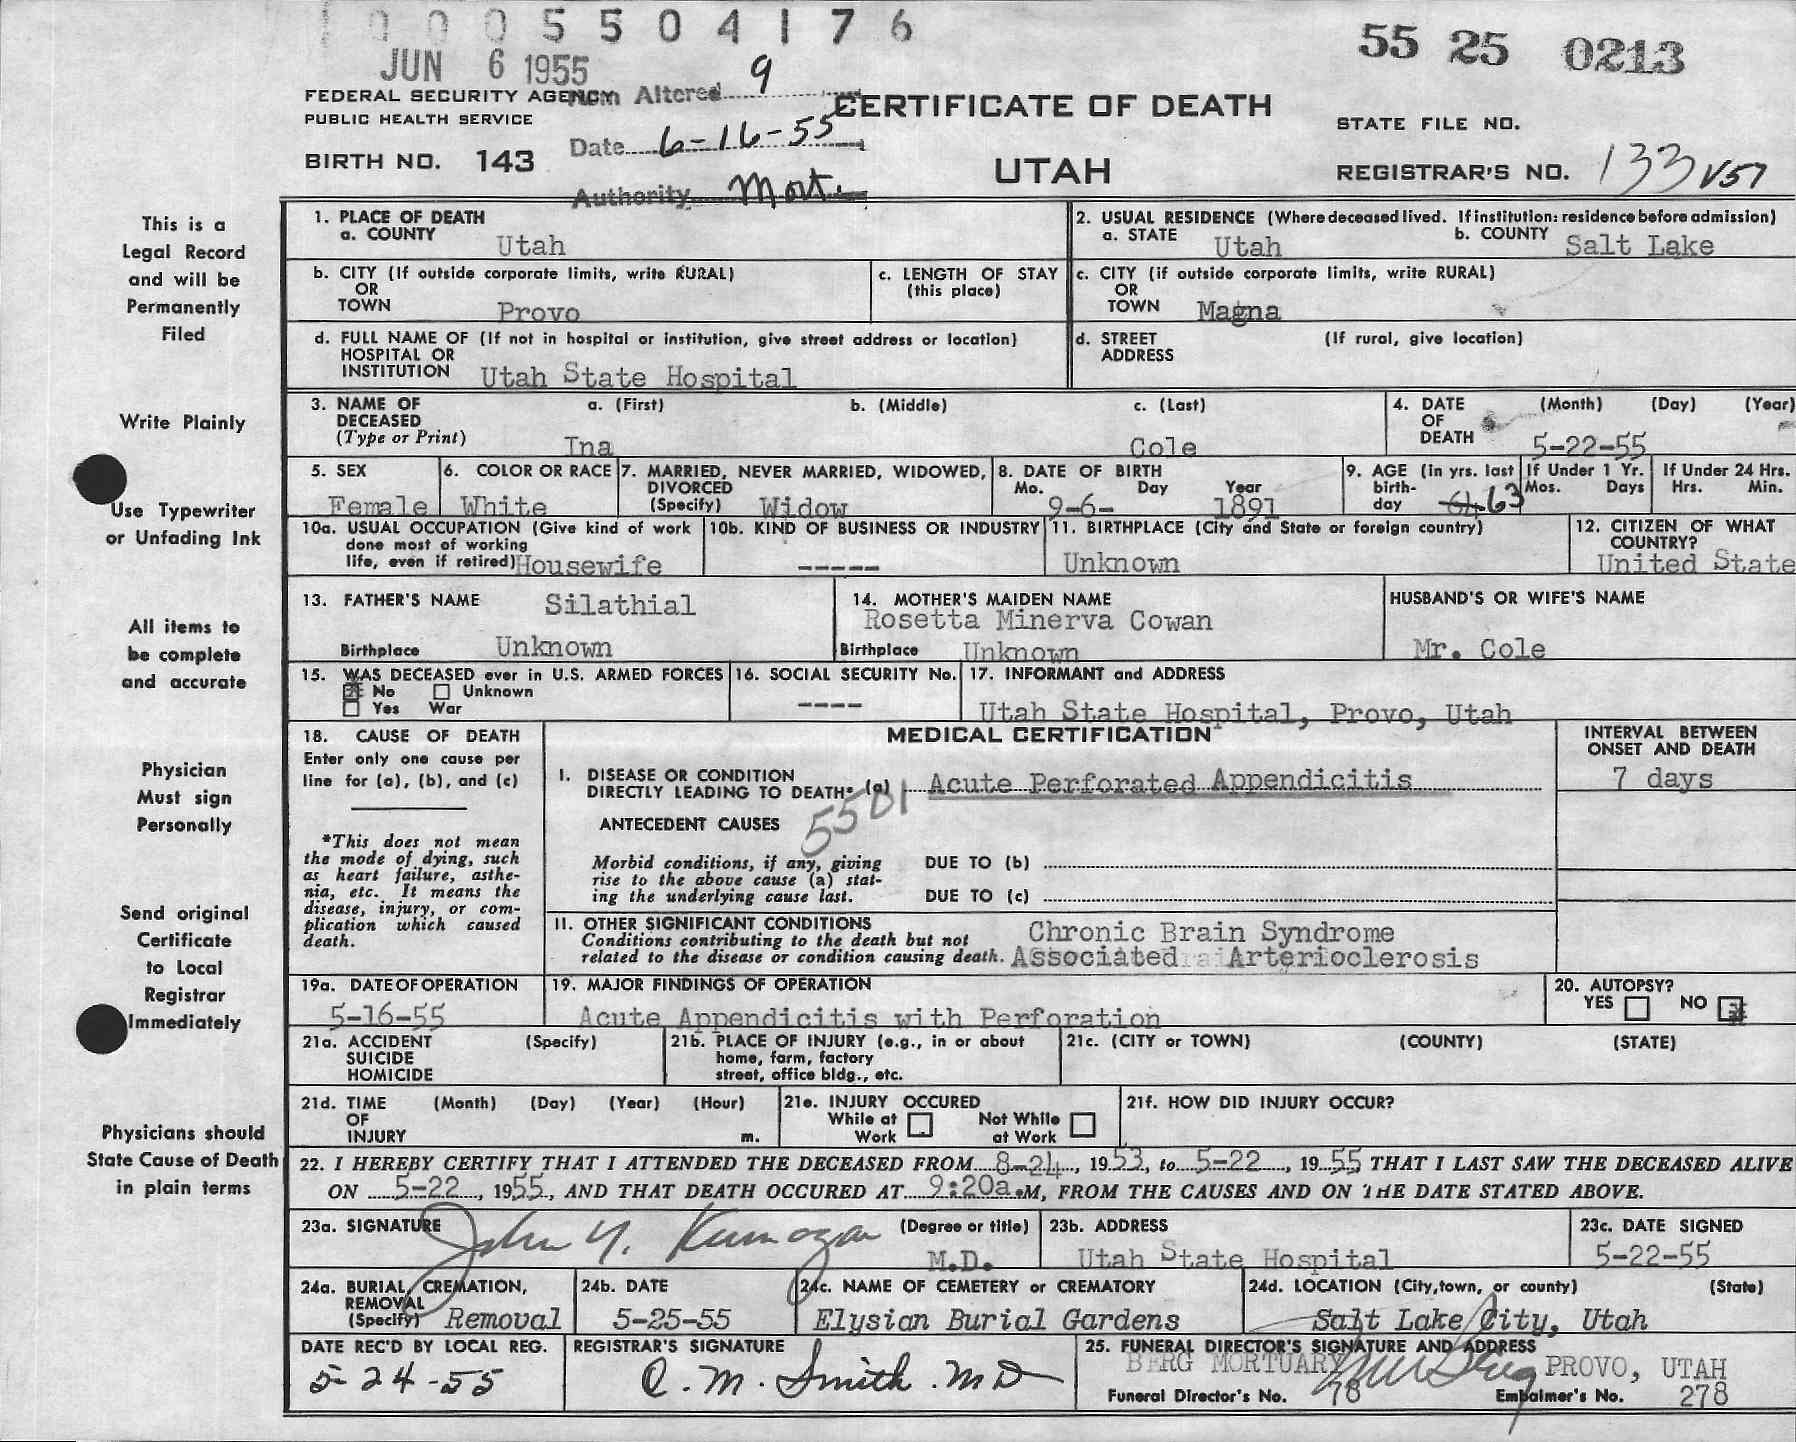 0005504176
JUN 6 1955
55 25 0213
FEDERAL SECURITY AGENCY
PUBLIC HEALTH SERVICE
BIRTH NO. 143
Item Altered 9
Date 6-16-55
Authority Mort.
CERTIFICATE OF DEATH
UTAH
STATE FILE NO.
REGISTRAR'S NO. 133 V57
This is a
Legal Record
and will be
Permanently
Filed
Write Plainly
Use Typewriter
or Unfading Ink
All items to
be complete
and accurate
Physician
Must sign
Personally
Send original
Certificate
to Local
Registrar
Immediately
Physicians should
State Cause of Death
in plain terms
1. PLACE OF DEATH
a. COUNTY Utah
2. USUAL RESIDENCE (Where deceased lived. If institution: residence before admission)
a. STATE Utah b. COUNTY Salt Lake
b. CITY (If outside corporate limits, write RURAL)
OR
TOWN Provo
c. LENGTH OF STAY
(this place)
c. CITY (if outside corporate limits, write RURAL)
OR
TOWN Magna
d. FULL NAME OF (If not in hospital or institution, give street address or location)
HOSPITAL OR
INSTITUTION Utah State Hospital
d. STREET (If rural, give location)
ADDRESS
3. NAME OF a. (First) b. (Middle) c. (Last)
DECEASED
(Type or Print) Ina Cole
4. DATE (Month) (Day) (Year)
OF
DEATH 5-22-55
5. SEX
Female
6. COLOR OR RACE
White
7. MARRIED, NEVER MARRIED, WIDOWED,
DIVORCED
(Specify) Widow
8. DATE OF BIRTH
Mo. Day Year
9-6- 1891
9. AGE (in yrs. last
birth-
day 64 63
If Under 1 Yr.
Mos. Days
If Under 24 Hrs.
Hrs. Min.
10a. USUAL OCCUPATION (Give kind of work
done most of working
life, even if retired) Housewife
10b. KIND OF BUSINESS OR INDUSTRY
-----
11. BIRTHPLACE (City and State or foreign country)
Unknown
12. CITIZEN OF WHAT
COUNTRY?
United State
13. FATHER'S NAME Silathial
Birthplace Unknown
14. MOTHER'S MAIDEN NAME
Rosetta Minerva Cowan
Birthplace Unknown
HUSBAND'S OR WIFE'S NAME
Mr. Cole
15. WAS DECEASED ever in U.S. ARMED FORCES
No Unknown
Yes War
16. SOCIAL SECURITY No.
----
17. INFORMANT and ADDRESS
Utah State Hospital, Provo, Utah
18. CAUSE OF DEATH
Enter only one cause per
line for (a), (b), and (c)
*This does not mean
the mode of dying, such
as heart failure, asthe-
nia, etc. It means the
disease, injury, or com-
plication which caused
death.
MEDICAL CERTIFICATION
INTERVAL BETWEEN
ONSET AND DEATH
I. DISEASE OR CONDITION
DIRECTLY LEADING TO DEATH* (a) Acute Perforated Appendicitis 7 days
5501
ANTECEDENT CAUSES
Morbid conditions, if any, giving
rise to the above cause (a) stat-
ing the underlying cause last.
DUE TO (b)
DUE TO (c)
II. OTHER SIGNIFICANT CONDITIONS
Conditions contributing to the death but not
related to the disease or condition causing death.
Chronic Brain Syndrome
Associated Arterioclerosis
19a. DATE OF OPERATION
5-16-55
19. MAJOR FINDINGS OF OPERATION
Acute Appendicitis with Perforation
20. AUTOPSY?
YES NO
21a. ACCIDENT (Specify)
SUICIDE
HOMICIDE
21b. PLACE OF INJURY (e.g., in or about
home, farm, factory
street, office bldg., etc.
21c. (CITY or TOWN) (COUNTY) (STATE)
21d. TIME (Month) (Day) (Year) (Hour)
OF
INJURY m.
21e. INJURY OCCURED
While at Work Not While at Work
21f. HOW DID INJURY OCCUR?
22. I HEREBY CERTIFY THAT I ATTENDED THE DECEASED FROM 8-24, 1953, to 5-22, 1955 THAT I LAST SAW THE DECEASED ALIVE
ON 5-22, 1955, AND THAT DEATH OCCURED AT 9:20a.M, FROM THE CAUSES AND ON THE DATE STATED ABOVE.
23a. SIGNATURE (Degree or title)
John Y. M.D.
23b. ADDRESS
Utah State Hospital
23c. DATE SIGNED
5-22-55
24a. BURIAL, CREMATION,
REMOVAL
(Specify) Removal
24b. DATE
5-25-55
24c. NAME OF CEMETERY or CREMATORY
Elysian Burial Gardens
24d. LOCATION (City, town, or county) (State)
Salt Lake City, Utah
DATE REC'D BY LOCAL REG.
5-24-55
REGISTRAR'S SIGNATURE
C. M. Smith. MD
25. FUNERAL DIRECTOR'S SIGNATURE AND ADDRESS
BERG MORTUARY PROVO, UTAH
Funeral Director's No. 78 Embalmer's No. 278